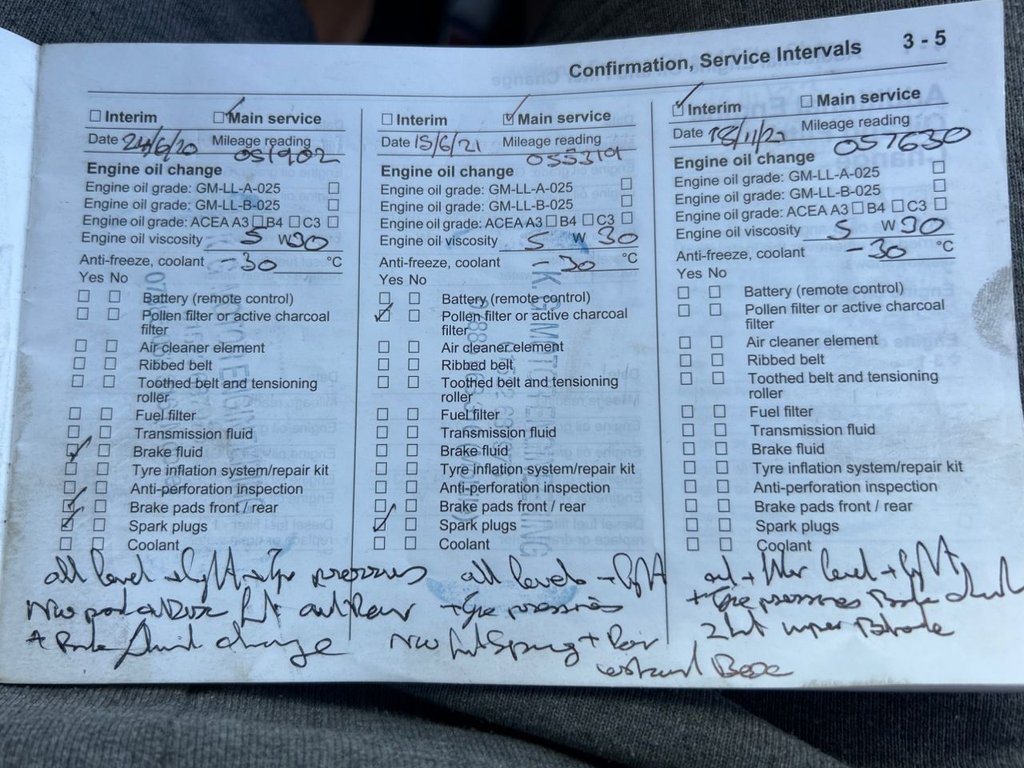 Confirmation, Service Intervals 3 - 5
Interim Main service
Date 24/6/20 Mileage reading
051902
Engine oil change
Engine oil grade: GM-LL-A-025
Engine oil grade: GM-LL-B-025
Engine oil grade: ACEA A3 B4 C3
Engine oil viscosity 5 W 30
Anti-freeze, coolant -30 °C
Yes No
Battery (remote control)
Pollen filter or active charcoal
filter
Air cleaner element
Ribbed belt
Toothed belt and tensioning
roller
Fuel filter
Transmission fluid
Brake fluid
Tyre inflation system/repair kit
Anti-perforation inspection
Brake pads front / rear
Spark plugs
Coolant
all level + light + Tyre pressures
New pad
+ Brake fluid change
Interim Main service
Date 15/6/21 Mileage reading
055319
Engine oil change
Engine oil grade: GM-LL-A-025
Engine oil grade: GM-LL-B-025
Engine oil grade: ACEA A3 B4 C3
Engine oil viscosity 5 W 30
Anti-freeze, coolant -30 °C
Yes No
Battery (remote control)
Pollen filter or active charcoal
filter
Air cleaner element
Ribbed belt
Toothed belt and tensioning
roller
Fuel filter
Transmission fluid
Brake fluid
Tyre inflation system/repair kit
Anti-perforation inspection
Brake pads front / rear
Spark plugs
Coolant
all levels + light
+ Tyre pressures
New Spring +
Interim Main service
Date Mileage reading
057630
Engine oil change
Engine oil grade: GM-LL-A-025
Engine oil grade: GM-LL-B-025
Engine oil grade: ACEA A3 B4 C3
Engine oil viscosity 5 W 30
Anti-freeze, coolant -30 °C
Yes No
Battery (remote control)
Pollen filter or active charcoal
filter
Air cleaner element
Ribbed belt
Toothed belt and tensioning
roller
Fuel filter
Transmission fluid
Brake fluid
Tyre inflation system/repair kit
Anti-perforation inspection
Brake pads front / rear
Spark plugs
Coolant
+ filter level + light
+ Tyre pressures Brake
2 wiper Blade